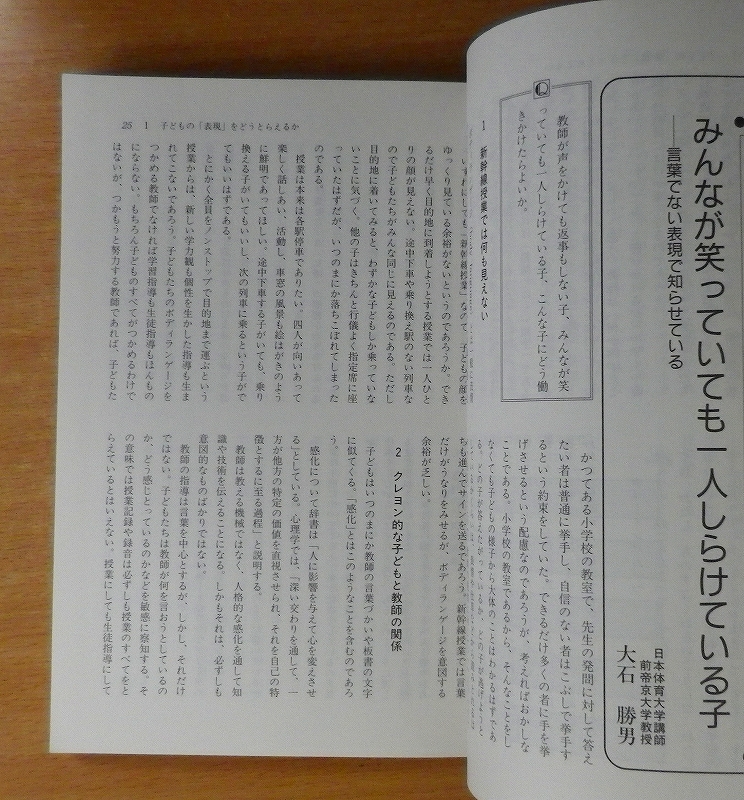 みんなが笑っていても一人しらけている子
――言葉でない表現で知らせている
日本体育大学講師
前帝京大学教授
大石 勝男
Q
教師が声をかけても返事もしない子、みんなが笑
っていても一人しらけている子、こんな子にどう働
きかけたらよいか。
1 新幹線授業では何も見えない
かつてある小学校の教室で、先生の発問に対して答え
たい者は普通に挙手し、自信のない者はこぶしで挙手す
るという約束をしていた。できるだけ多くの者に手を挙
げさせるという配慮なのであろうが、考えればおかしな
ことである。小学校の教室であるから、そんなことをし
なくても子どもの様子から大体のことはわかるはずであ
る。どの子が答えたがっているか、どの子が逃げようと
25 1 子どもの「表現」をどうとらえるか
いずれにしても「新幹線授業」なので、子どもの顔を
ゆっくり見ている余裕がないというのであろうか、でき
るだけ早く目的地に到着しようとする授業では一人ひと
りの顔が見えない。途中下車や乗り換え駅のない列車な
ので子どもたちがみんな同じに見えるのである。ただし
目的地に着いてみると、わずかな子どもしか乗っていな
いことに気づく。他の子はきちんと行儀よく指定席に座
っていたはずだが、いつのまにか落ちこぼれてしまった
のである。
授業は本来は各駅停車でありたい。四人が向いあって
楽しく話しあい、活動し、車窓の風景も絵はがきのよう
に鮮明であってほしい。途中下車する子がいても、乗り
換える子がいてもいいし、次の列車に乗るという子がで
てもいいはずである。
とにかく全員をノンストップで目的地まで運ぶという
授業からは、新しい学力観も個性を生かした指導も生ま
れてこないであろう。子どもたちのボディランゲージを
つかめる教師でなければ学習指導も生徒指導もほんもの
にならない。もちろん子どものすべてがつかめるわけで
はないが、つかもうと努力する教師であれば、子どもた
ちも進んでサインを送るであろう。新幹線授業では言葉
だけがうなりをみせるが、ボディランゲージを意図する
余裕が乏しい。
2 クレヨン的な子どもと教師の関係
子どもはいつのまにか教師の言葉づかいや板書の文字
に似てくる。「感化」とはこのようなことを含むのであろ
う。
感化について辞書は「人に影響を与えて心を変えさせ
る」としている。心理学では、「深い交わりを通して、一
方が他方の特定の価値を直視させられ、それを自己の特
徴とするに至る過程」と説明する。
教師は教える機械ではなく、人格的な感化を通して知
識や技術を伝えることになる。しかもそれは、必ずしも
意図的なものばかりではない。
教師の指導は言葉を中心とするが、しかし、それだけ
ではない。子どもたちは教師が何を言おうとしているの
か、どう感じとっているのかなどを敏感に察知する。そ
の意味では授業記録や録音は必ずしも授業のすべてをと
らえているとはいえない。授業にしても生徒指導にして